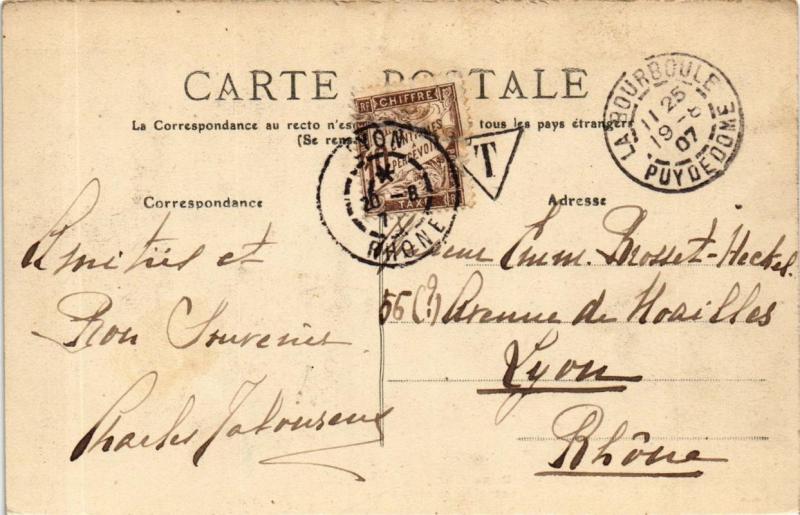 CARTE POSTALE
La Correspondance au recto n'es tous les pays étrangers
(Se rens
LA BOURBOULE
11 25
19 -8
07
PUY DE DOME
RF CHIFFRE
CENTIMES
PERCEVOIR
TAXE
T
LYON
20 -8
RHONE
Correspondance
Amitiés et
Bon Souvenir
Charles
Adresse
Emm. Brosset-Heckel
56 (?) Avenue de Noailles
Lyon
Rhône